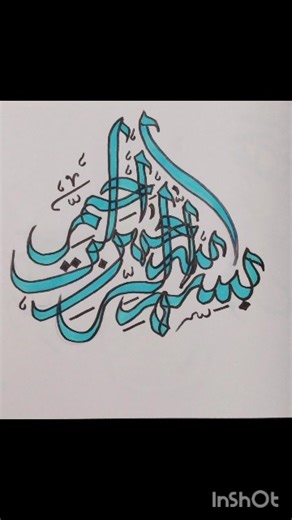 بسم الله الرحمن الرحيم
InShOt